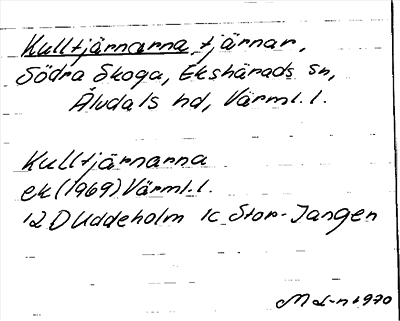 Kulltjärnarna tjärnar,
Södra Skoga, Ekshärads sn,
Älvdals hd, Värml. l.
Kulltjärnarna
ek (1969) Värml. l.
12 D Uddeholm 1c Stor-Jangen
1970